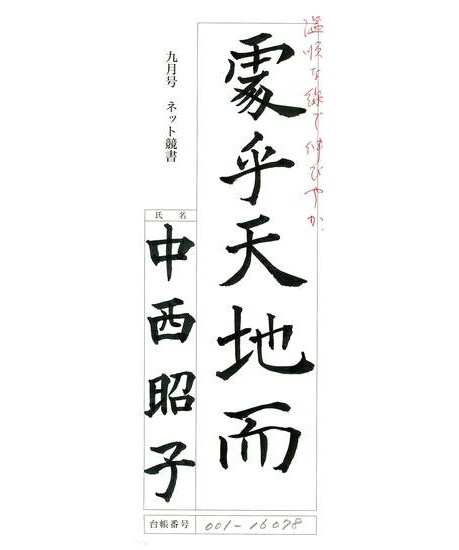 温順な線で伸びやか。
處乎天地而
九月号 ネット競書
氏 名
中西昭子
台帳番号 001-16078